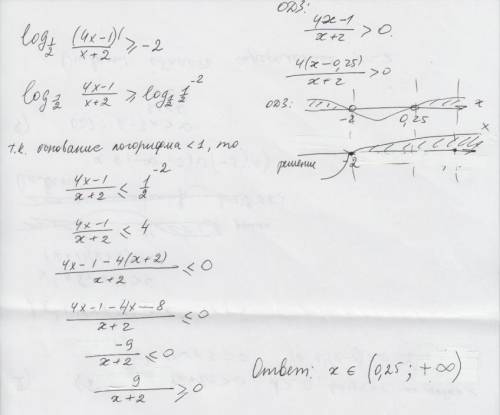 log_{1/2} (4x-1)/(x+2) ≥ -2
log_{1/2} (4x-1)/(x+2) ≥ log_{1/2} 1/2^{-2}
т.к. основание логарифма < 1, то
(4x-1)/(x+2) ≤ 1/2^{-2}
(4x-1)/(x+2) ≤ 4
(4x-1-4(x+2))/(x+2) ≤ 0
(4x-1-4x-8)/(x+2) ≤ 0
-9/(x+2) ≤ 0
9/(x+2) ≥ 0
ОДЗ:
(4x-1)/(x+2) > 0.
4(x-0,25)/(x+2) > 0
ОДЗ: -2 0,25 x
решение -2 x
Ответ: x ∈ (0,25; +∞)